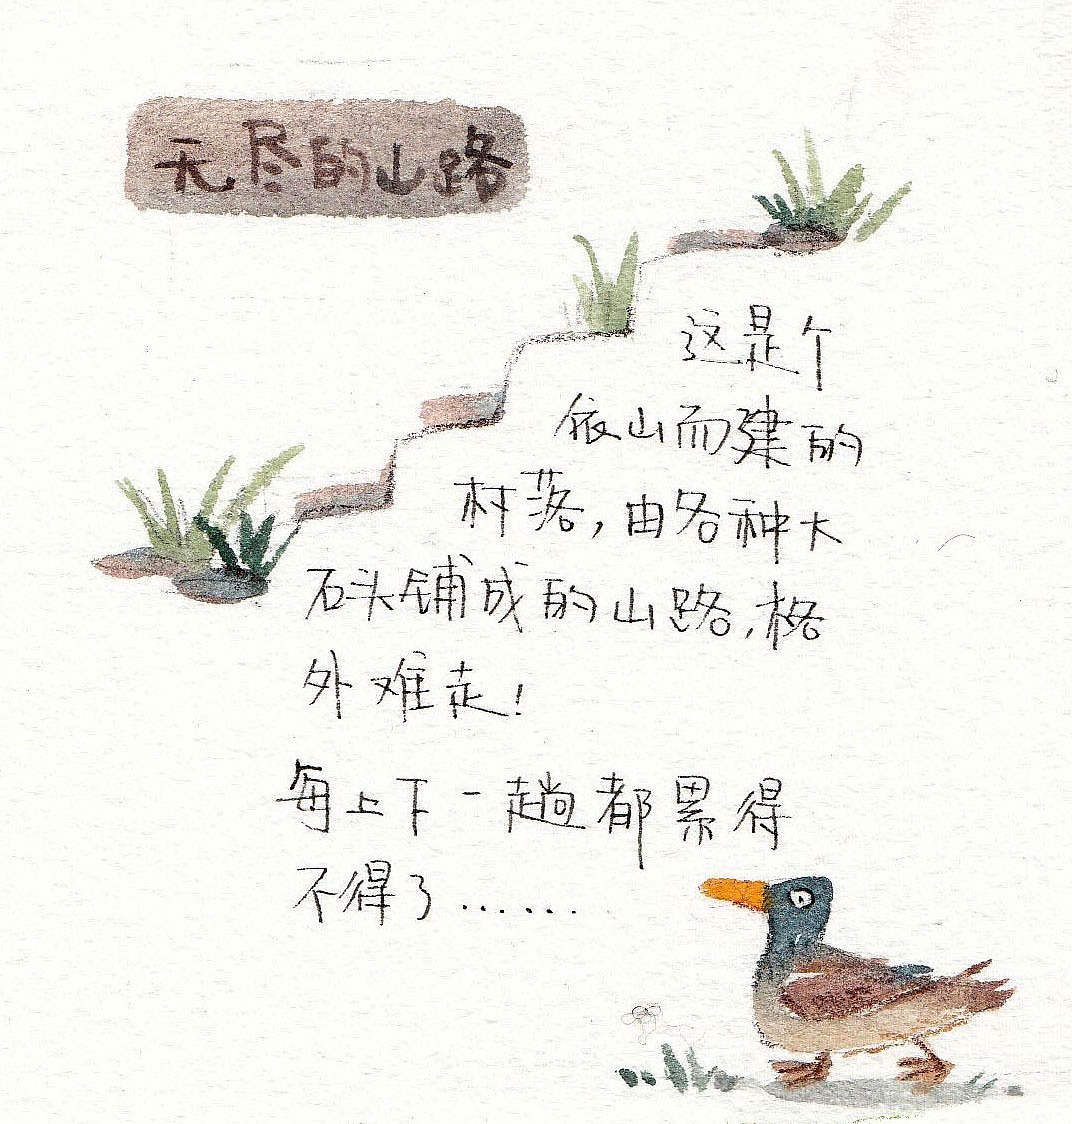 无尽的山路
这是个
依山而建的
村落,由各种大
石头铺成的山路,格
外难走!
每上下一趟都累得
不得了......